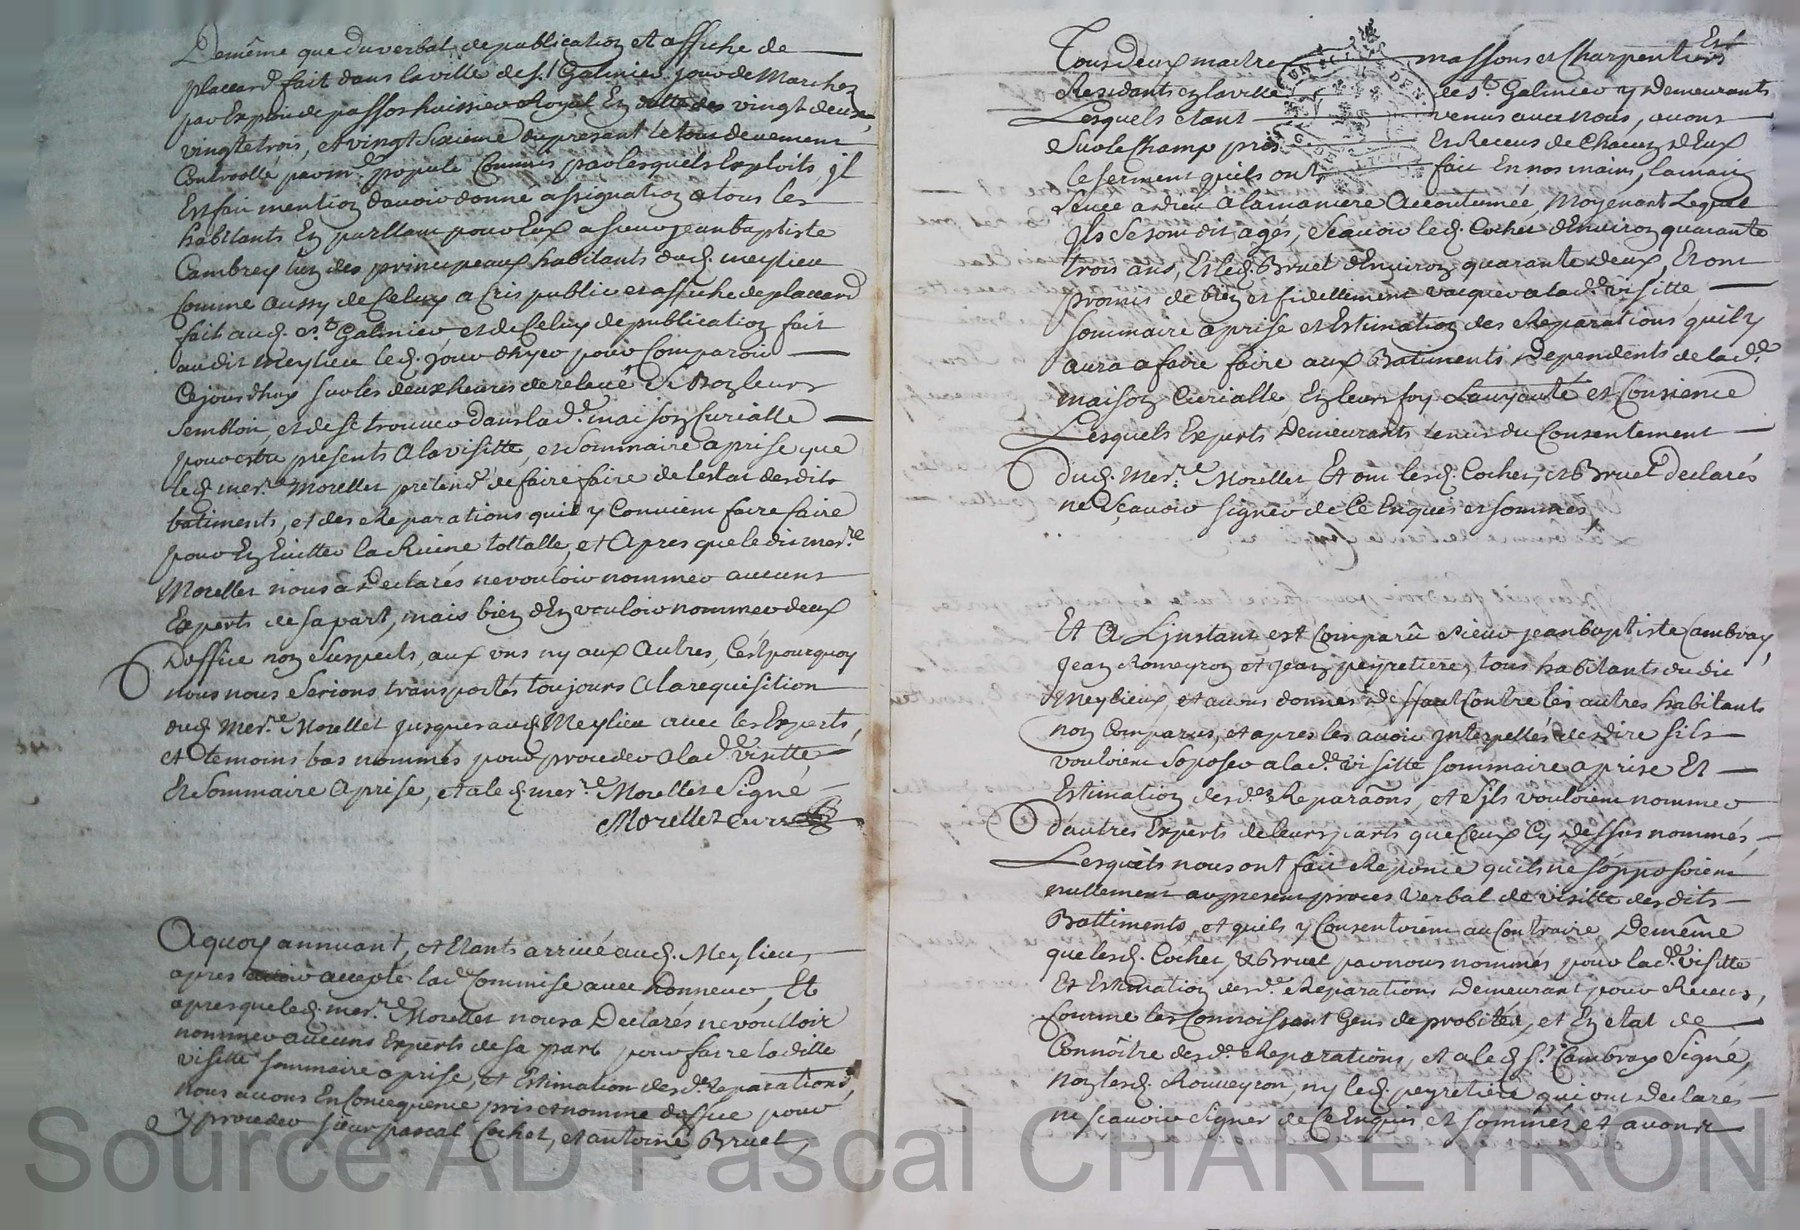 Demême que du verbal de publication et affiche de
placcard fait dans la ville de st Galmier jour de Marchez
par Exploit de passos huissier Royal En datte des vingt deux,
vingt trois, et vingt Sixieme du presant le tout deuement
Controollé par mr. popule Commis par lesquels Exploits, jl
Est fait mention d'avoir donné assignation a tous les
habitants En parllant pour Eux a sieur jean baptiste
Cambrey lun des principeaux habitants dud. meylieu
Comme aussy de Celuy a Cris public et affiche de placcard
fait aud. st. Galmier et de Celuy de publication fait
audit Meylieu led. jour dhyer pour Comparoir
Cejourdhuy sur les deux heures de relevé Si Bon leurs
sembloit, et de se trouver dans lad.e maison Curialle
pour estre presents a la visitte, et Sommaire aprise que
led. mes.re Morellet pretend de faire faire de lestat desdits
batiments, et des Reparations quil y Convient faire faire
pour En Eviter la Ruine tottalle, et Apres que ledit mes.re
Morellet nous a Declarés ne vouloir nommer aucuns
Experts de sa part, mais bien d'En vouloir nommer deux
D'office non Suspects, aux uns ny aux Autres, C'est pourquoy
nous nous Serions transportés toujours A la requisition
dud. Mes.re Morellet jusques aud. Meylieu avec les Experts,
et temoins bas nommés pour proceder a lad.e visitte
Et Sommaire Aprise, et a led. mes.re Morellet Signé
Morellet curé
A quoy annuant, et Etants arrivé aud. Meylieu,
apres avoir accepté lad.e Commise avec honneur, Et
apres que led. mes.re Morellet nous a Declarés ne voulloir
nommer aucuns Experts de sa part pour faire laditte
visitte sommaire aprise, et Estimation desd.es Reparations,
nous avons En Concequence pris et nommé d'office pour
y proceder sieur pascal Cochet, et antoine Bruet,
Tous deux maitre massons et Charpentiers Est
Residants en la ville de st. Galmier y Demeurants
Lesquels étant venus avec nous, avons
Sur le Champ pris Et Receus de Chacun d'Eux
le serment quils ont fait En nos mains, la main
Levée a dieu A la maniere Accoutumée, Moyenant Lequel
Jls se sont dit agés, Scavoir led. Cochet d'Environ quarante
trois ans, Et led. Bruet d'Environ quarante deux, Et ont
promis de bien et fidellement vacquer a lad.e visitte
sommaire aprise et Estimation des Reparations quil y
aura a faire faire aux Batiments Dependents de lad.e
maison Curialle, En leurs foy Lauyauté et Consience
Lesquels Experts Demeurants tenus du Consentement
dud. Mes.re Morellet Et ont lesd. Cochet, et Bruet Declarés
ne Scavoir signer de Ce Enquis et sommés,
Et A Ljnstant est Comparû Sieur jean baptiste Cambray,
Jean Romeyron et Jean peyretiere, tous habitants du dit
Meylieux, et avons donnés de ffaut Contre les autres habitants
non Comparus, et apres les avoir Jnterpellés de dire sils
vouloient Soposer a lad.e visitte sommaire aprise Et
Estimation desd.es Reparãons, et Sils vouloient nommer
d'autres Experts de leurs parts que Ceux Cy Dessus nommés,
Lesquels nous ont fait Reponce quils ne sopposoient
nullement au present proces Verbal de visitte desdits
Battiments, et quils y Consentoient au Contraire, Demême
que lesd. Cochet, & Bruet par nous nommés pour lad.e visitte
Et Estimation desd.es Reparations Demeurant pour Receus,
Comme les Connoissant Gens de probitée, et En etat de
Connoître desd.es Reparations, et a led. sr. Cambray Signé,
Non lesd. Romeyron, ny led. peyretiere qui ont Declarés
ne scavoir Signer de Ce Enquis, et sommés, et avons
Source AD Pascal CHAREYRON